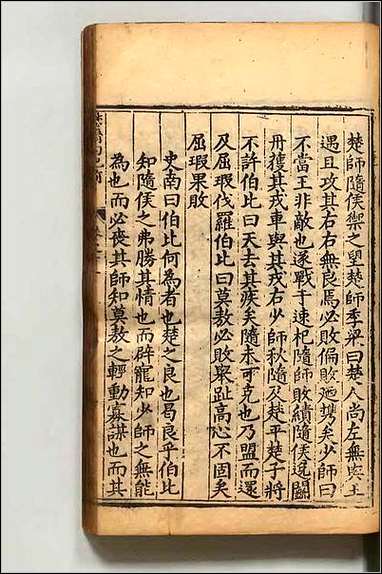 楚師隨侯禦之望楚師季梁曰楚人尚左無與王
遇且攻其右右無良焉必敗偏敗廼攜矣少師曰
不當王非敵也遂戰于速杞隨師敗績隨侯逸鬬
丹獲其戎車與其戎右少師秋隨及楚平楚子將
不許伯比曰天去其疾矣隨未可克也乃盟而還
及屈瑕伐羅伯比曰莫敖必敗舉趾高心不固矣
屈瑕果敗
史南曰伯比何為者也楚之良也曷良乎伯比
知隨侯之弗勝其情也而辟寵知少師之無能
為也而必喪其師知莫敖之輕動寡謀也而其